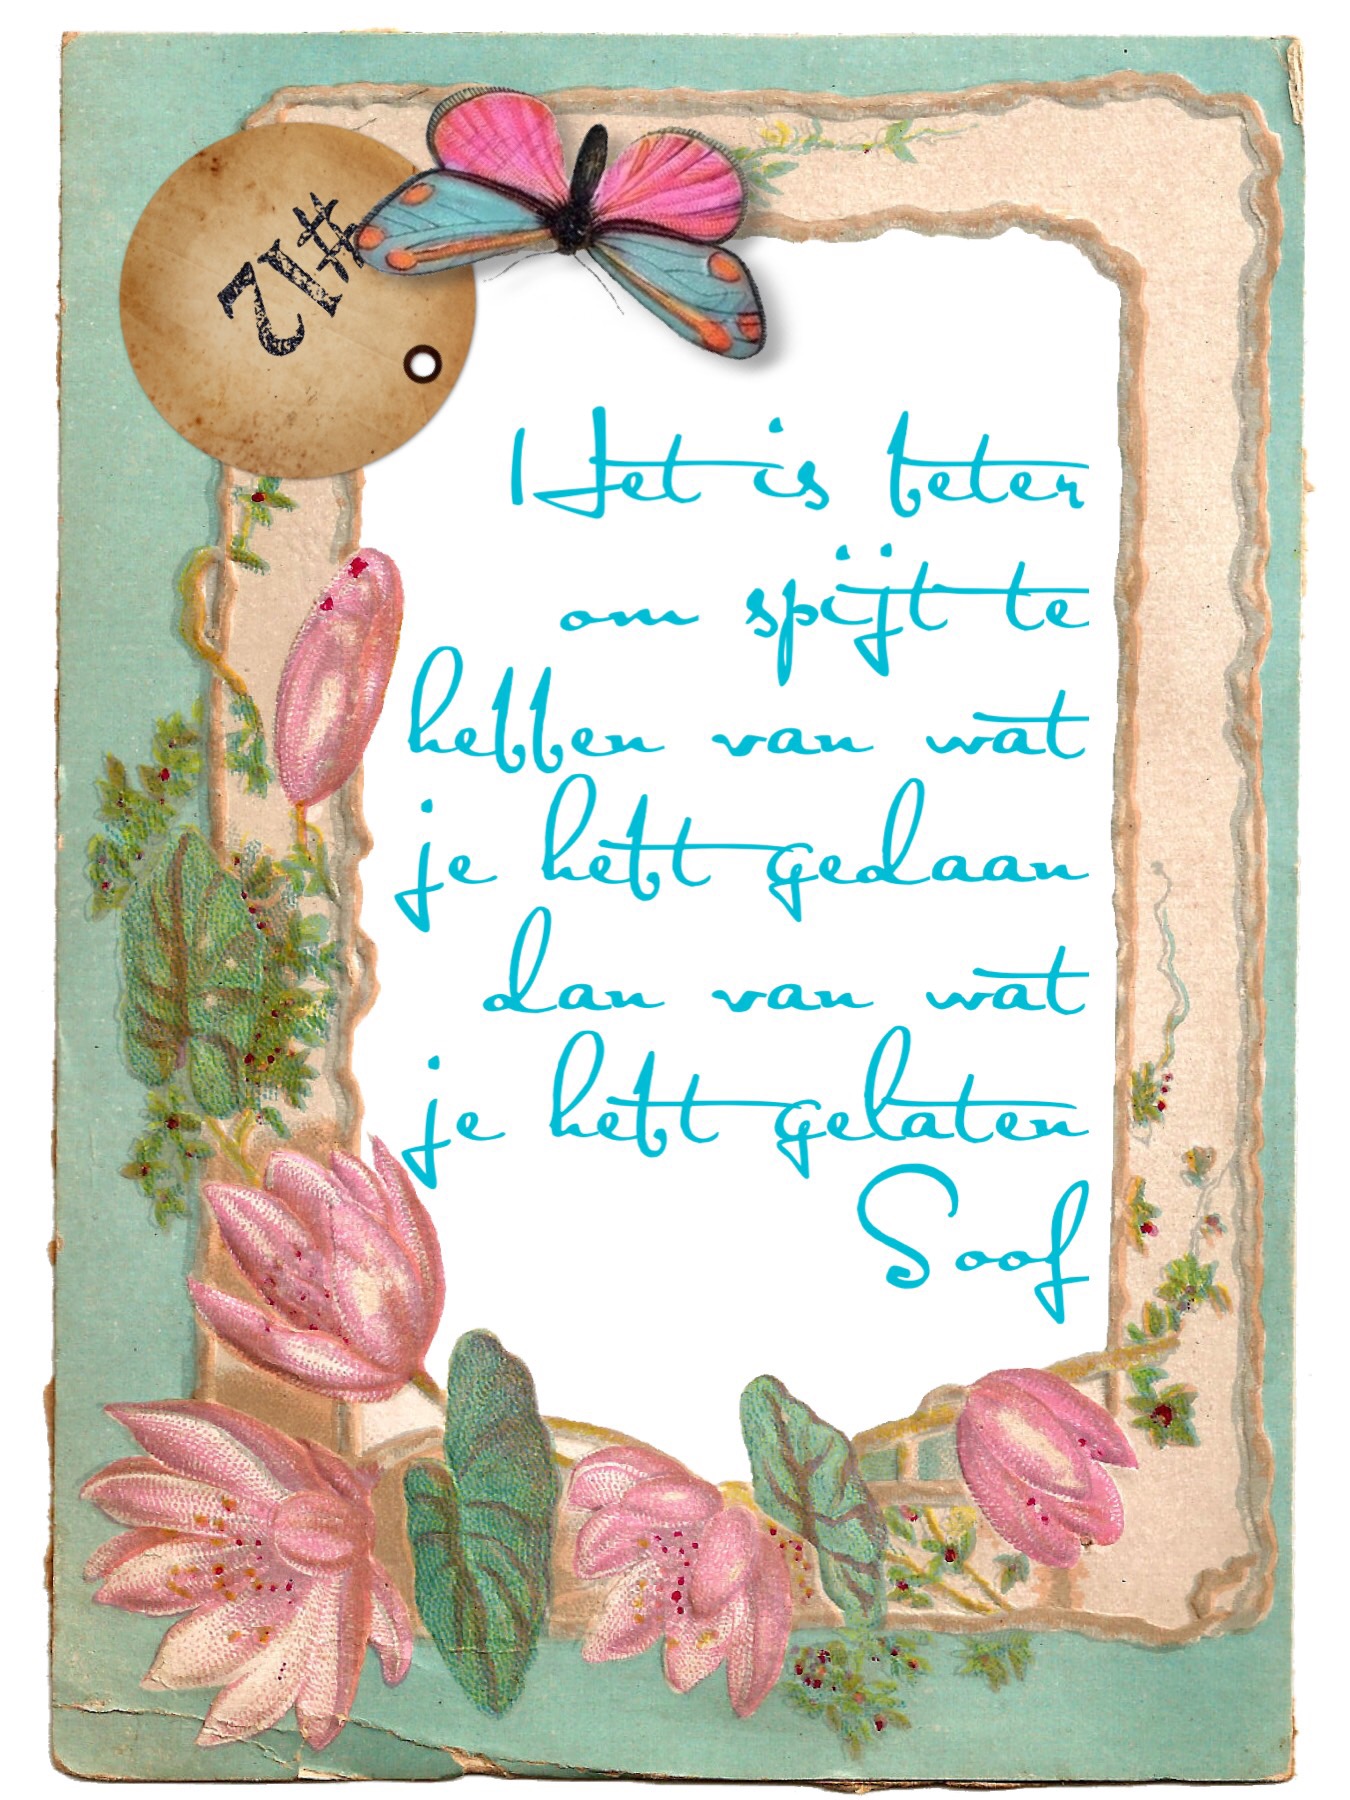 #12
Het is beter
om spijt te
hebben van wat
je hebt gedaan
dan van wat
je hebt gelaten
Soof